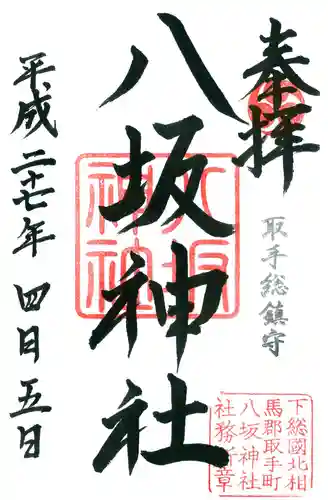 奉拝
取手総鎮守
八坂神社
八坂神社
平成二十七年 四月五日
下総國北相
馬郡取手町
八坂神社
社務所章